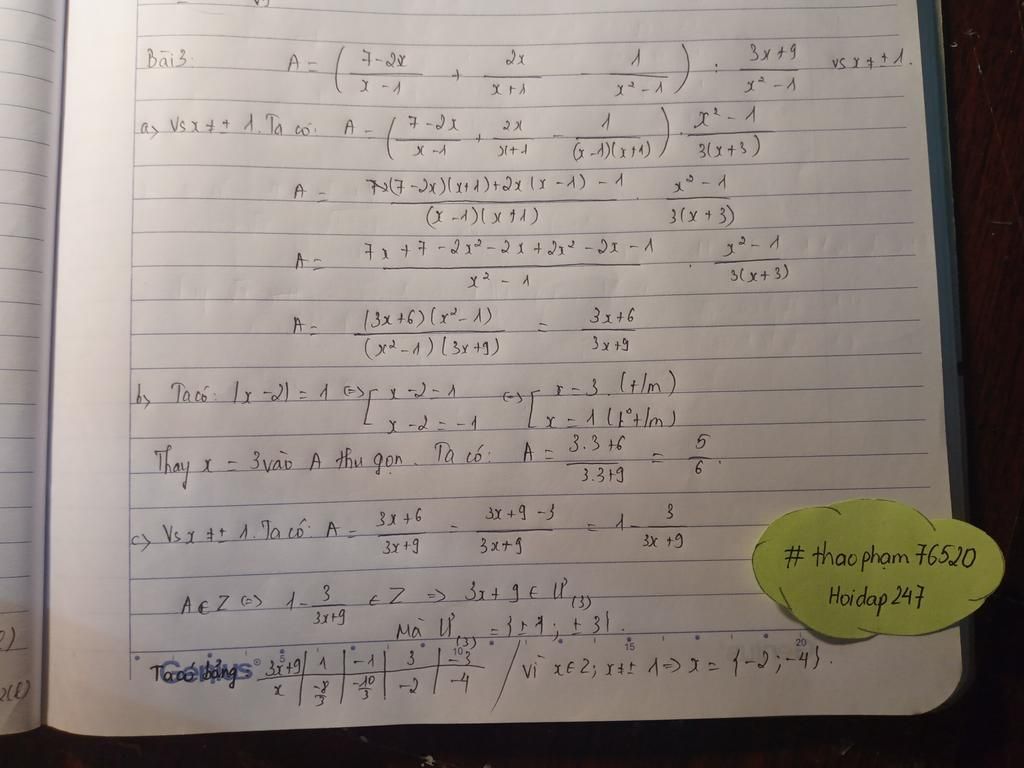 Bài 3: A = ( 7-2x / x-1 + 2x / x+1 - 1 / x²-1 ) : 3x+9 / x²-1 vs x ≠ ± 1.
a> Vs x ≠ ± 1. Ta có: A = ( 7-2x / x-1 + 2x / x+1 - 1 / (x-1)(x+1) ) . x²-1 / 3(x+3)
A = (7-2x)(x+1)+2x(x-1)-1 / (x-1)(x+1) . x²-1 / 3(x+3)
A = 7x+7-2x²-2x+2x²-2x-1 / x²-1 . x²-1 / 3(x+3)
A = (3x+6)(x²-1) / (x²-1)(3x+9) = 3x+6 / 3x+9
b> Ta có: |x-2| = 1 <=> [ x-2=1 <=> [ x=3 (t/m)
x-2=-1 x=1 (k° t/m)
Thay x = 3 vào A thu gọn. Ta có: A = 3.3+6 / 3.3+9 = 5 / 6.
c> Vs x ≠ ± 1. Ta có: A = 3x+6 / 3x+9 = 3x+9-3 / 3x+9 = 1 - 3 / 3x+9
A ∈ Z <=> 1 - 3 / 3x+9 ∈ Z => 3x+9 ∈ Ư(3)
Mà Ư(3) = {±1; ±3}.
Ta có bảng 3x+9 | 1 | -1 | 3 | -3
x | -8/3 | -10/3 | -2 | -4
Vì x ∈ Z; x ≠ ± 1 => x = {-2; -4}.
# thaophạm76520
Hoidap247
5 10 15 20